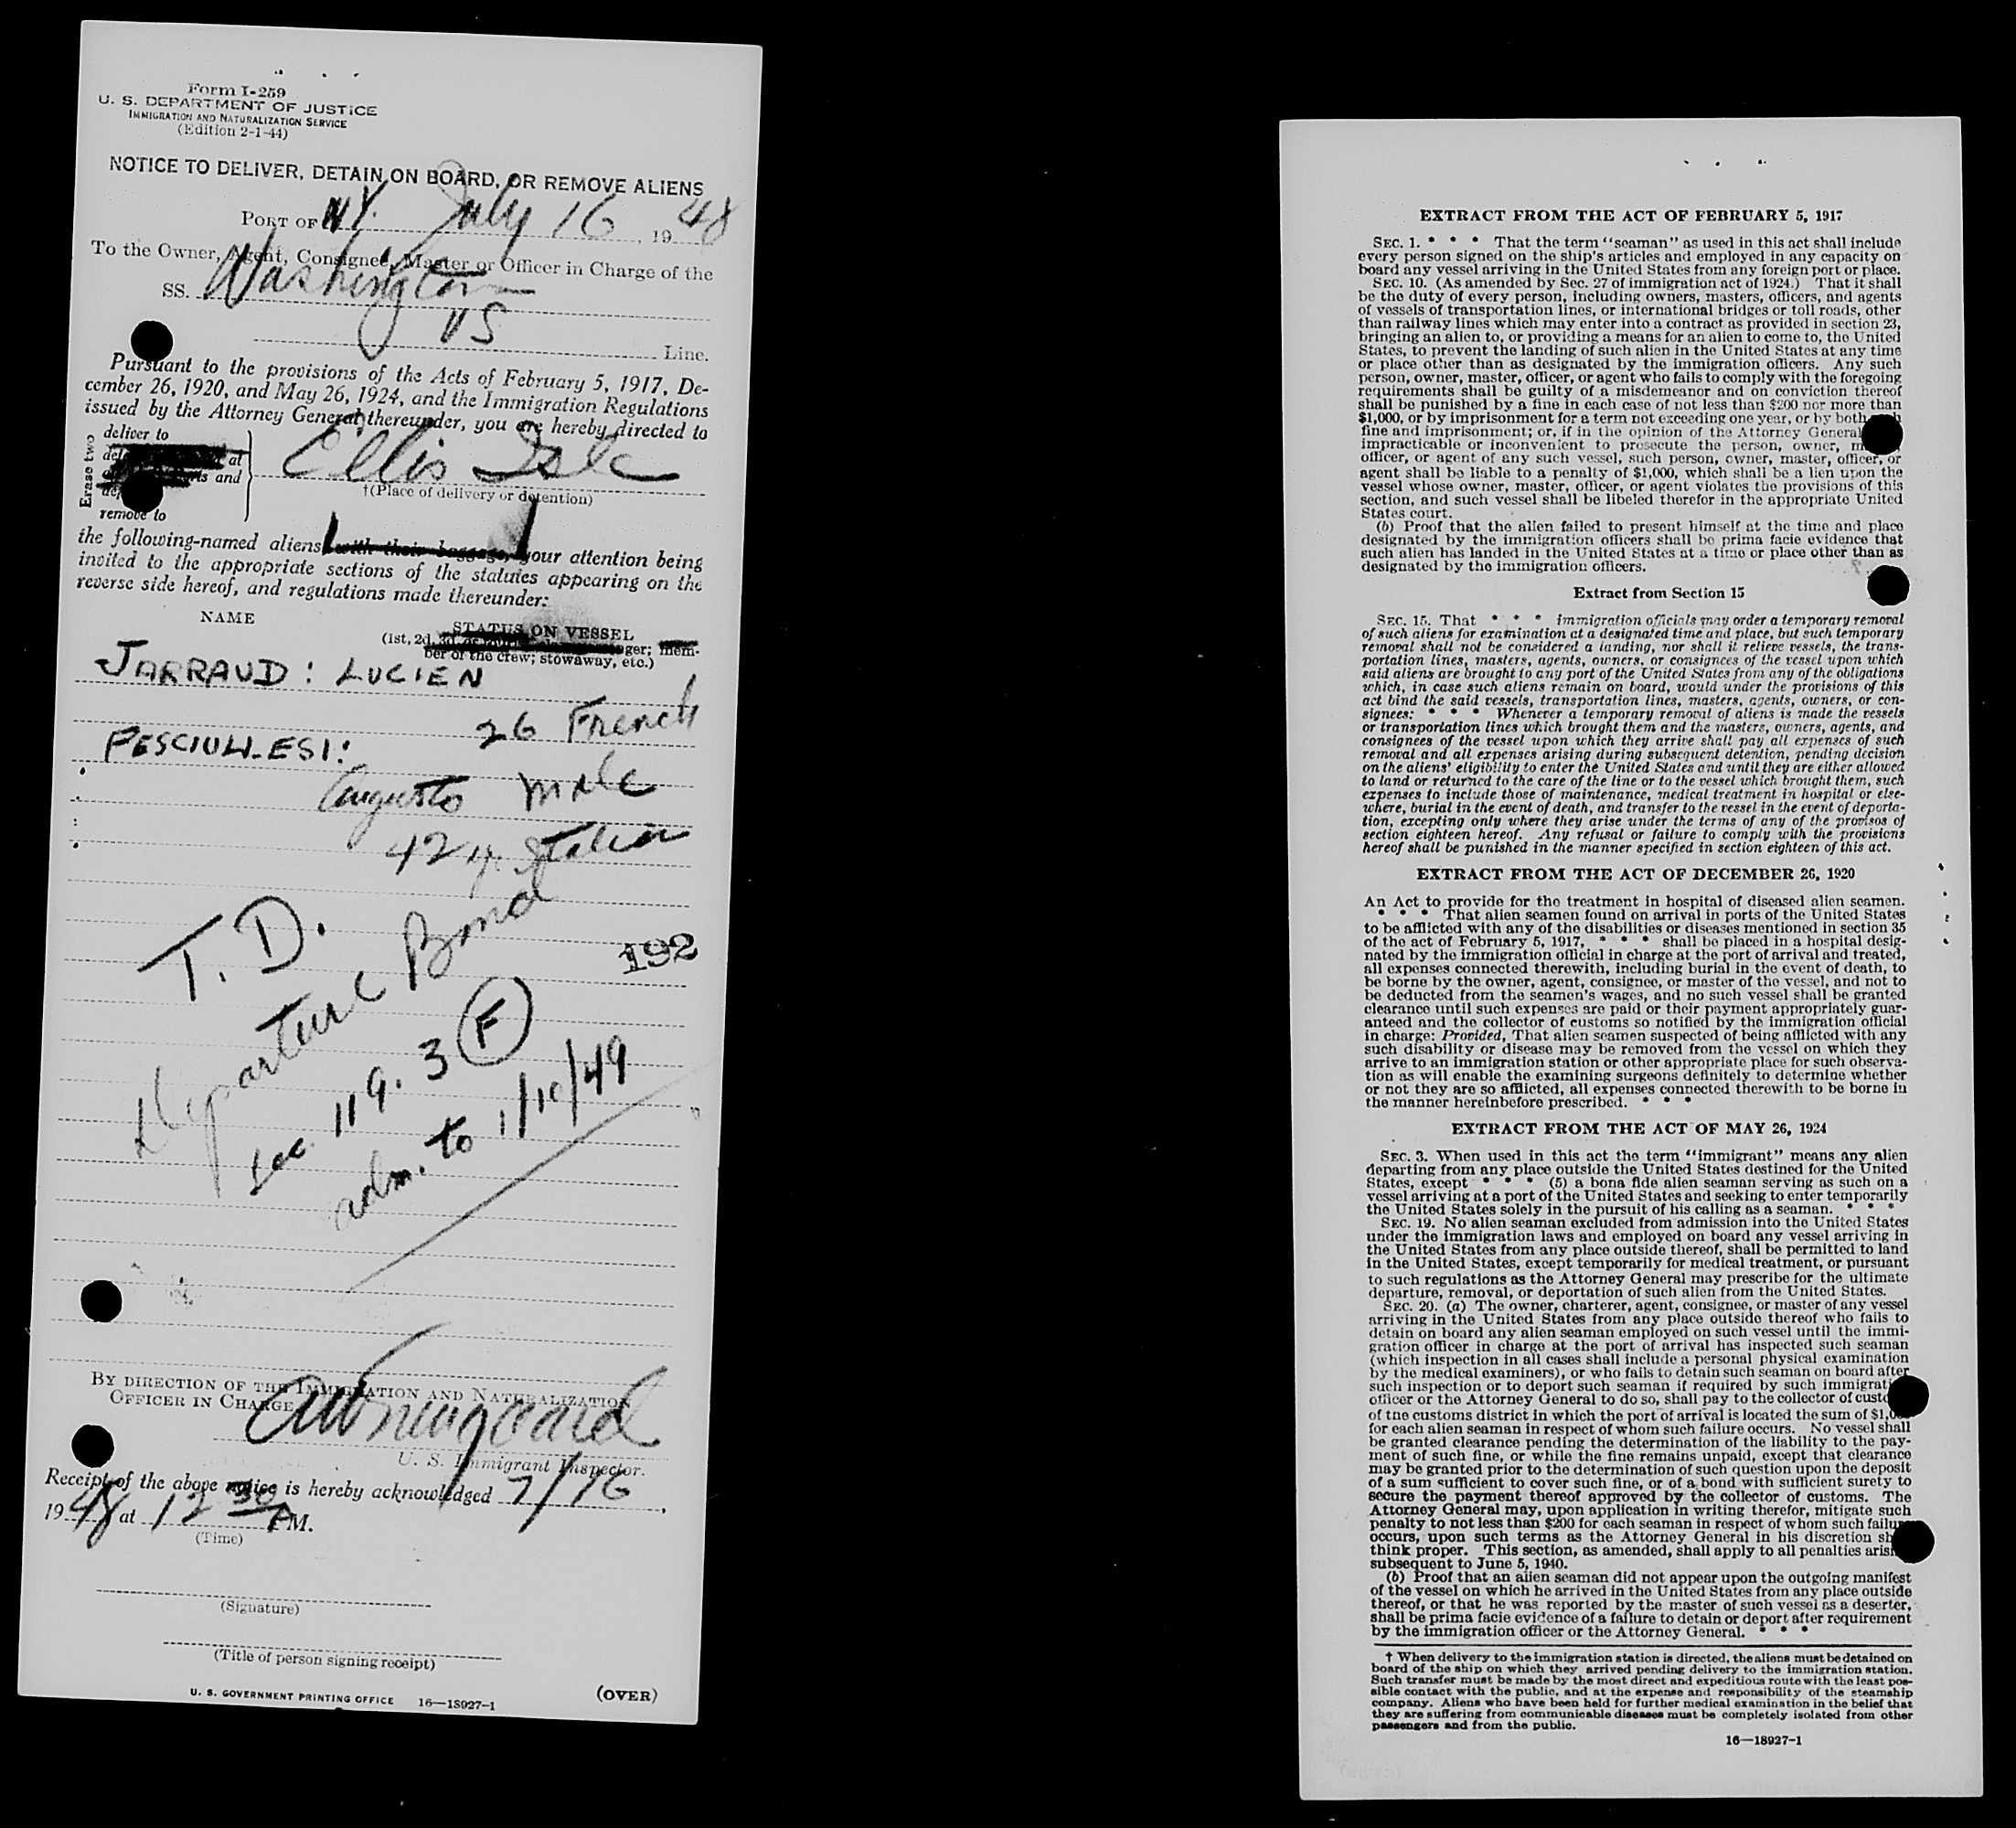 Form I-259
U. S. DEPARTMENT OF JUSTICE
IMMIGRATION AND NATURALIZATION SERVICE
(Edition 2-1-44)
NOTICE TO DELIVER, DETAIN ON BOARD, OR REMOVE ALIENS
PORT OF NY. July 16, 1948
To the Owner, Agent, Consignee, Master or Officer in Charge of the
SS. Washington
US Line.
Pursuant to the provisions of the Acts of February 5, 1917, De-
cember 26, 1920, and May 26, 1924, and the Immigration Regulations
issued by the Attorney General thereunder, you are hereby directed to
Erase two
deliver to
at
and
remove to
Ellis Isle
†(Place of delivery or detention)
the following-named aliens with their baggage, your attention being
invited to the appropriate sections of the statutes appearing on the
reverse side hereof, and regulations made thereunder:
NAME
STATUS ON VESSEL
(1st, 2d, ger; mem-
ber of the crew; stowaway, etc.)
JARRAUD: LUCIEN
26 French
PESCIULLESI:
Augusto male
42 y. Italian
T. D.
Departure Bond
192
Sec. 119. 3 (F)
adm. to 1/10/49
BY DIRECTION OF THE IMMIGRATION AND NATURALIZATION
OFFICER IN CHARGE
U. S. Immigrant Inspector.
Receipt of the above notice is hereby acknowledged 7/16,
1948 at 12 30 PM.
(Time)
(Signature)
(Title of person signing receipt)
U. S. GOVERNMENT PRINTING OFFICE 16—18927-1
(OVER)
EXTRACT FROM THE ACT OF FEBRUARY 5, 1917
SEC. 1. * * * That the term "seaman" as used in this act shall include
every person signed on the ship's articles and employed in any capacity on
board any vessel arriving in the United States from any foreign port or place.
SEC. 10. (As amended by Sec. 27 of immigration act of 1924.) That it shall
be the duty of every person, including owners, masters, officers, and agents
of vessels of transportation lines, or international bridges or toll roads, other
than railway lines which may enter into a contract as provided in section 23,
bringing an alien to, or providing a means for an alien to come to, the United
States, to prevent the landing of such alien in the United States at any time
or place other than as designated by the immigration officers. Any such
person, owner, master, officer, or agent who fails to comply with the foregoing
requirements shall be guilty of a misdemeanor and on conviction thereof
shall be punished by a fine in each case of not less than $200 nor more than
$1,000, or by imprisonment for a term not exceeding one year, or by both
fine and imprisonment; or, if in the opinion of the Attorney General
impracticable or inconvenient to prosecute the person, owner,
officer, or agent of any such vessel, such person, owner, master, officer, or
agent shall be liable to a penalty of $1,000, which shall be a lien upon the
vessel whose owner, master, officer, or agent violates the provisions of this
section, and such vessel shall be libeled therefor in the appropriate United
States court.
(b) Proof that the alien failed to present himself at the time and place
designated by the immigration officers shall be prima facie evidence that
such alien has landed in the United States at a time or place other than as
designated by the immigration officers.
Extract from Section 15
SEC. 15. That * * * immigration officials may order a temporary removal
of such aliens for examination at a designated time and place, but such temporary
removal shall not be considered a landing, nor shall it relieve vessels, the trans-
portation lines, masters, agents, owners, or consignees of the vessel upon which
said aliens are brought to any port of the United States from any of the obligations
which, in case such aliens remain on board, would under the provisions of this
act bind the said vessels, transportation lines, masters, agents, owners, or con-
signees: * * * Whenever a temporary removal of aliens is made the vessels
or transportation lines which brought them and the masters, owners, agents, and
consignees of the vessel upon which they arrive shall pay all expenses of such
removal and all expenses arising during subsequent detention, pending decision
on the aliens' eligibility to enter the United States and until they are either allowed
to land or returned to the care of the line or to the vessel which brought them, such
expenses to include those of maintenance, medical treatment in hospital or else-
where, burial in the event of death, and transfer to the vessel in the event of deporta-
tion, excepting only where they arise under the terms of any of the provisos of
section eighteen hereof. Any refusal or failure to comply with the provisions
hereof shall be punished in the manner specified in section eighteen of this act.
EXTRACT FROM THE ACT OF DECEMBER 26, 1920
An Act to provide for the treatment in hospital of diseased alien seamen.
* * * That alien seamen found on arrival in ports of the United States
to be afflicted with any of the disabilities or diseases mentioned in section 35
of the act of February 5, 1917, * * * shall be placed in a hospital desig-
nated by the immigration official in charge at the port of arrival and treated,
all expenses connected therewith, including burial in the event of death, to
be borne by the owner, agent, consignee, or master of the vessel, and not to
be deducted from the seamen's wages, and no such vessel shall be granted
clearance until such expenses are paid or their payment appropriately guar-
anteed and the collector of customs so notified by the immigration official
in charge: Provided, That alien seamen suspected of being afflicted with any
such disability or disease may be removed from the vessel on which they
arrive to an immigration station or other appropriate place for such observa-
tion as will enable the examining surgeons definitely to determine whether
or not they are so afflicted, all expenses connected therewith to be borne in
the manner hereinbefore prescribed. * * *
EXTRACT FROM THE ACT OF MAY 26, 1924
SEC. 3. When used in this act the term "immigrant" means any alien
departing from any place outside the United States destined for the United
States, except * * * (5) a bona fide alien seaman serving as such on a
vessel arriving at a port of the United States and seeking to enter temporarily
the United States solely in the pursuit of his calling as a seaman. * * *
SEC. 19. No alien seaman excluded from admission into the United States
under the immigration laws and employed on board any vessel arriving in
the United States from any place outside thereof, shall be permitted to land
in the United States, except temporarily for medical treatment, or pursuant
to such regulations as the Attorney General may prescribe for the ultimate
departure, removal, or deportation of such alien from the United States.
SEC. 20. (a) The owner, charterer, agent, consignee, or master of any vessel
arriving in the United States from any place outside thereof who fails to
detain on board any alien seaman employed on such vessel until the immi-
gration officer in charge at the port of arrival has inspected such seaman
(which inspection in all cases shall include a personal physical examination
by the medical examiners), or who fails to detain such seaman on board after
such inspection or to deport such seaman if required by such immigrat
officer or the Attorney General to do so, shall pay to the collector of custo
of the customs district in which the port of arrival is located the sum of $1,0
for each alien seaman in respect of whom such failure occurs. No vessel shall
be granted clearance pending the determination of the liability to the pay-
ment of such fine, or while the fine remains unpaid, except that clearance
may be granted prior to the determination of such question upon the deposit
of a sum sufficient to cover such fine, or of a bond with sufficient surety to
secure the payment thereof approved by the collector of customs. The
Attorney General may, upon application in writing therefor, mitigate such
penalty to not less than $200 for each seaman in respect of whom such failur
occurs, upon such terms as the Attorney General in his discretion sh
think proper. This section, as amended, shall apply to all penalties aris
subsequent to June 5, 1940.
(b) Proof that an alien seaman did not appear upon the outgoing manifest
of the vessel on which he arrived in the United States from any place outside
thereof, or that he was reported by the master of such vessel as a deserter,
shall be prima facie evidence of a failure to detain or deport after requirement
by the immigration officer or the Attorney General. * * *
† When delivery to the immigration station is directed, the aliens must be detained on
board of the ship on which they arrived pending delivery to the immigration station.
Such transfer must be made by the most direct and expeditious route with the least pos-
sible contact with the public, and at the expense and responsibility of the steamship
company. Aliens who have been held for further medical examination in the belief that
they are suffering from communicable diseases must be completely isolated from other
passengers and from the public.
16—18927-1